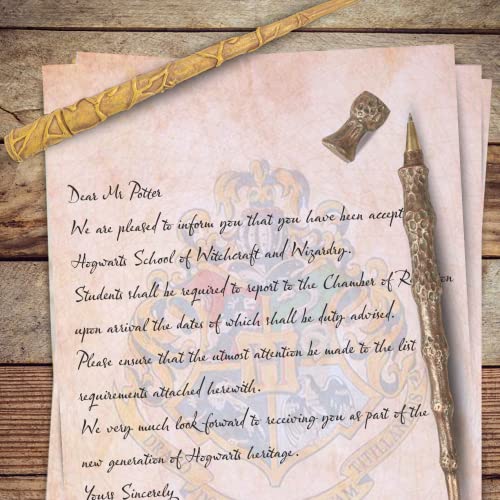 Dear Mr Potter
We are pleased to inform you that you have been accept
Hogwarts School of Witchcraft and Wizardry.
Students shall be required to report to the Chamber of
upon arrival the dates of which shall be duty advised.
Please ensure that the utmost attention be made to the list
requirements attached herewith.
We very much look forward to receiving you as part of the
new generation of Hogwarts heritage.
Yours Sincerely